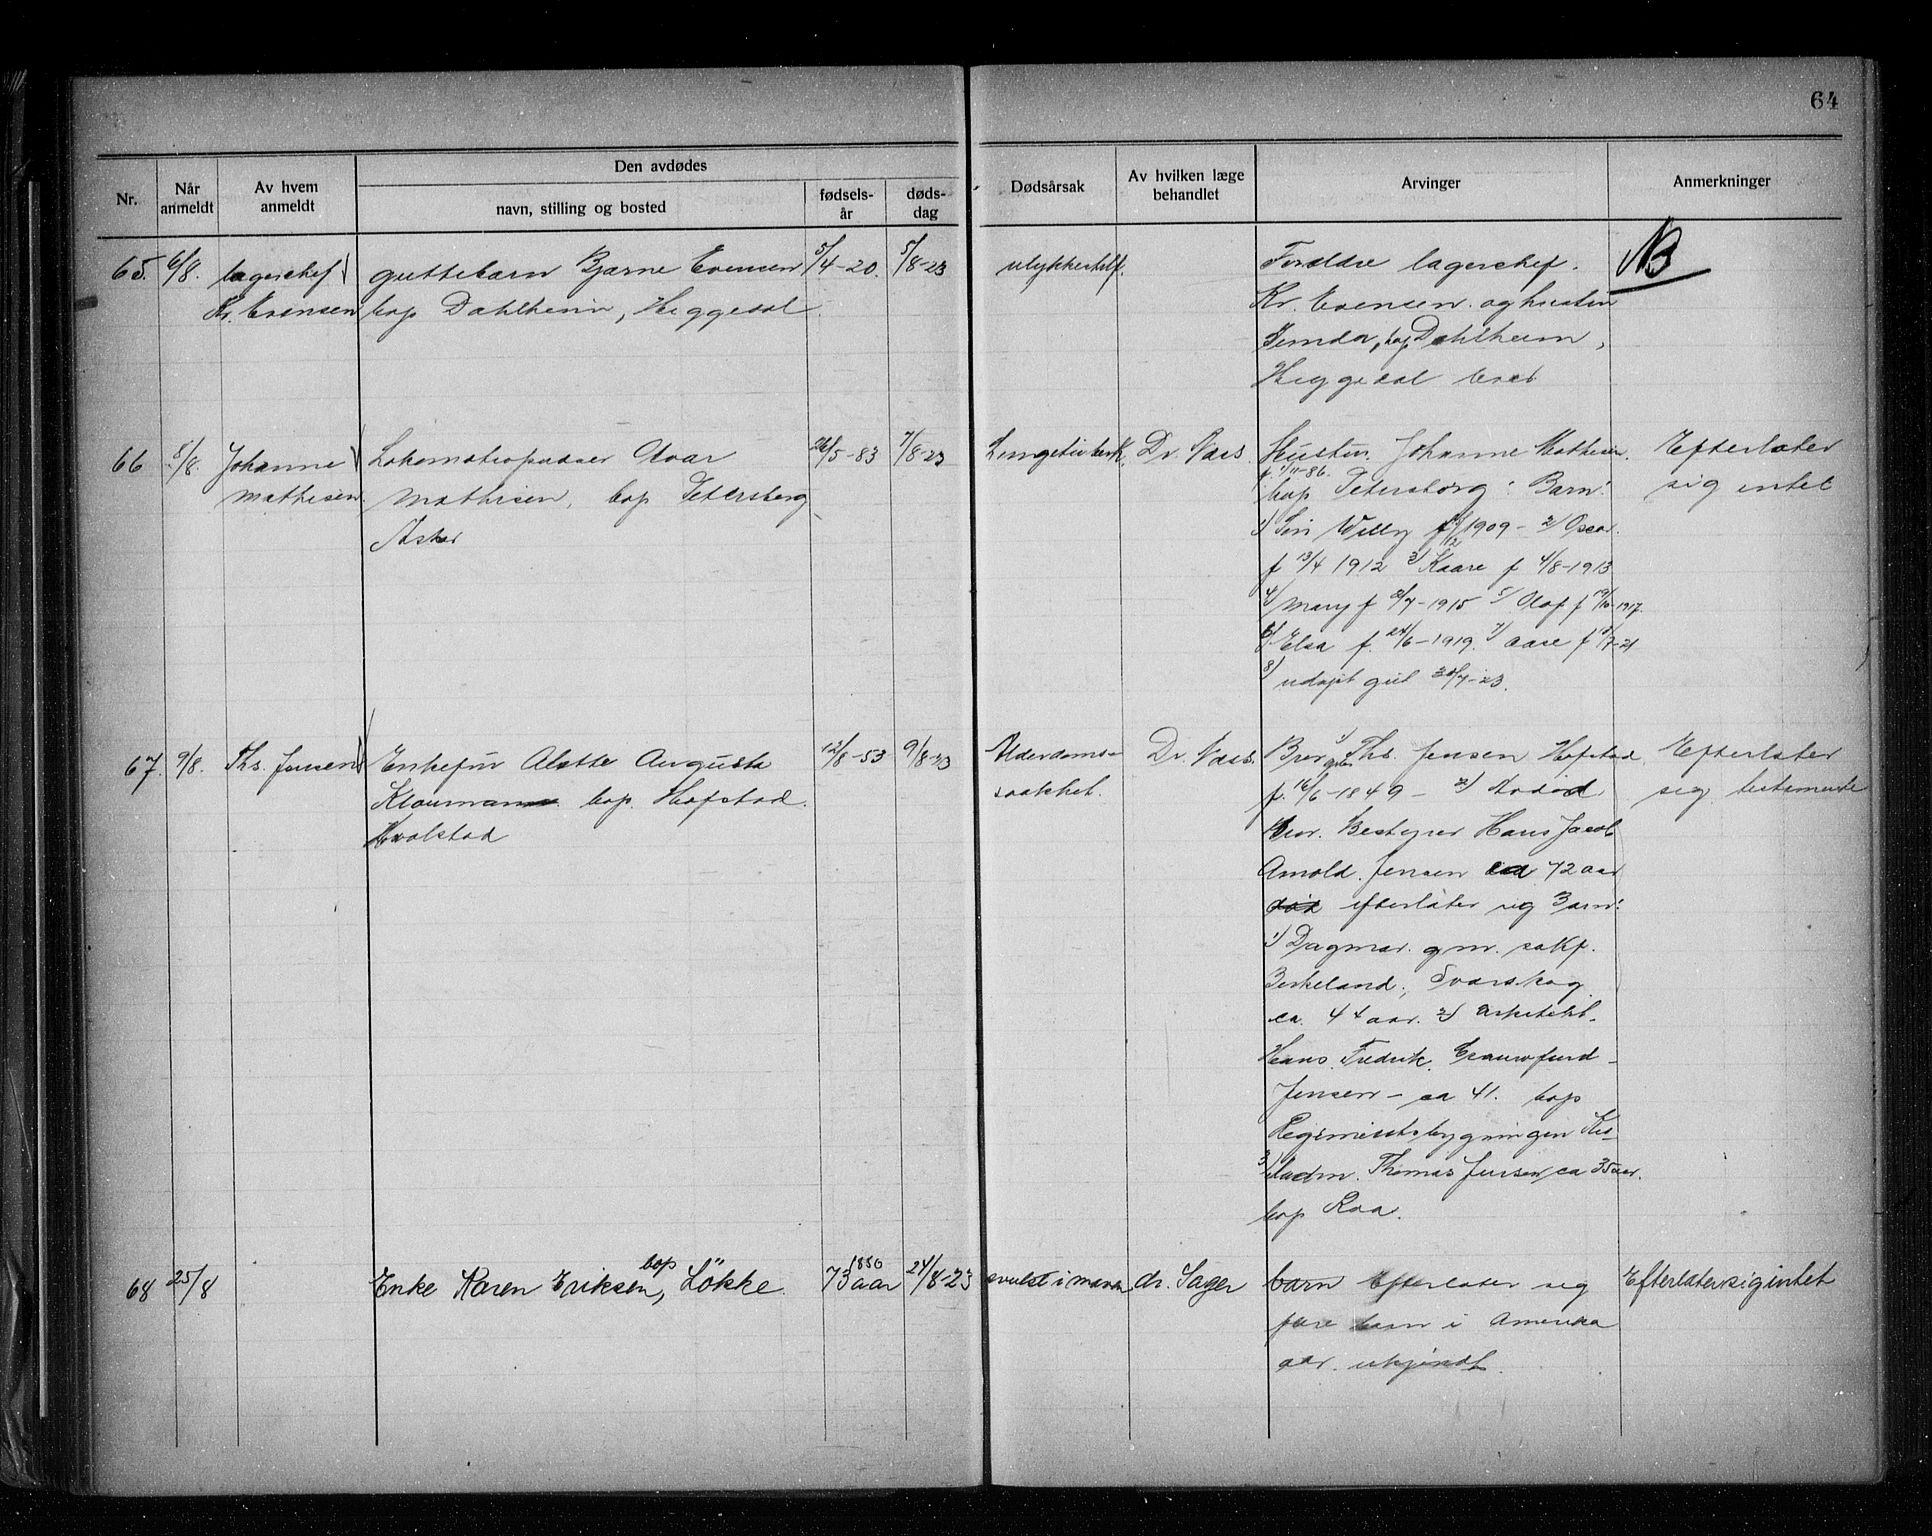 64
Den avdødes
Nr.
Når anmeldt
Av hvem anmeldt
navn, stilling og bosted
fødselsår
dødsdag
Dødsårsak
Av hvilken læge behandlet
Arvinger
Anmerkninger
65. 6/8. lagerchef
Kr. Evensen
guttebarn Bjarne Evensen
bop Dahlheim, Heggedal
5/4-20. 5/8-23
ulykkestilf.
Forældre lagerchef.
Kr. Evensen og hustru
bop Dahlheim,
Heggedal
NB
66 8/8. Johanne
Mathisen.
Mathisen, bop Petersborg
Asker
26/5-83 7/8-23
Dr. Næss.
Hustru Johanne Mathisen.
f 1/11-86.
bop Petersborg: Barn:
1) Willy f 1909 - 2) Oscar.
f 13/4 1912 3) Kaare f 4/8-1913
4) Mary f 8/7-1915 5) Olaf f 19/10-1917.
6) Elsa f. 24/6-1919. 7) Aase f 7-21
8) udøpt 7-23.
Efterlater
sig intet
67. 9/8. Ths. Jensen
Enkefru Alette Augusta
bop. Hofstad.
Hvalstad
12/8-53 9/8-23
Alderdoms-
svakhet.
Dr. Næss.
Bror 1) Ths. Jensen Hofstad
f. 16/6-1849 - 2) Avdød
bror. Bestyrer Hans Jacob
Arnold Jensen ca 72 aar
efterlater sig Barn:
1) Dagmar. gm. sakf.
Birkeland,
ca. 44 aar. 2) arkitekt.
Hans Fredrik Crawfurd-
Jensen - ca 41. bop
3) Thomas Jensen ca 35 aar.
bop Roa.
Efterlater
sig testamente
68 25/8
Enke Karen Eriksen, bop Løkke.
1850
73 aar 24/8-23
svulst i maven
dr. Sager
barn Efterlater sig
barn i Amerika
adr. ukjendt.
Efterlater sig intet